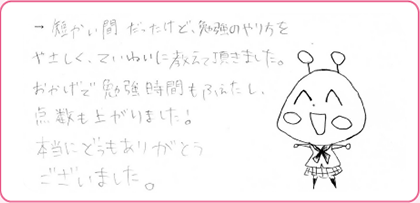 → 短かい間だったけど、勉強のやり方を
やさしく、ていねいに教えて頂きました。
おかげで勉強時間もふえたし、
点数も上がりました!
本当にどうもありがとう
ございました。